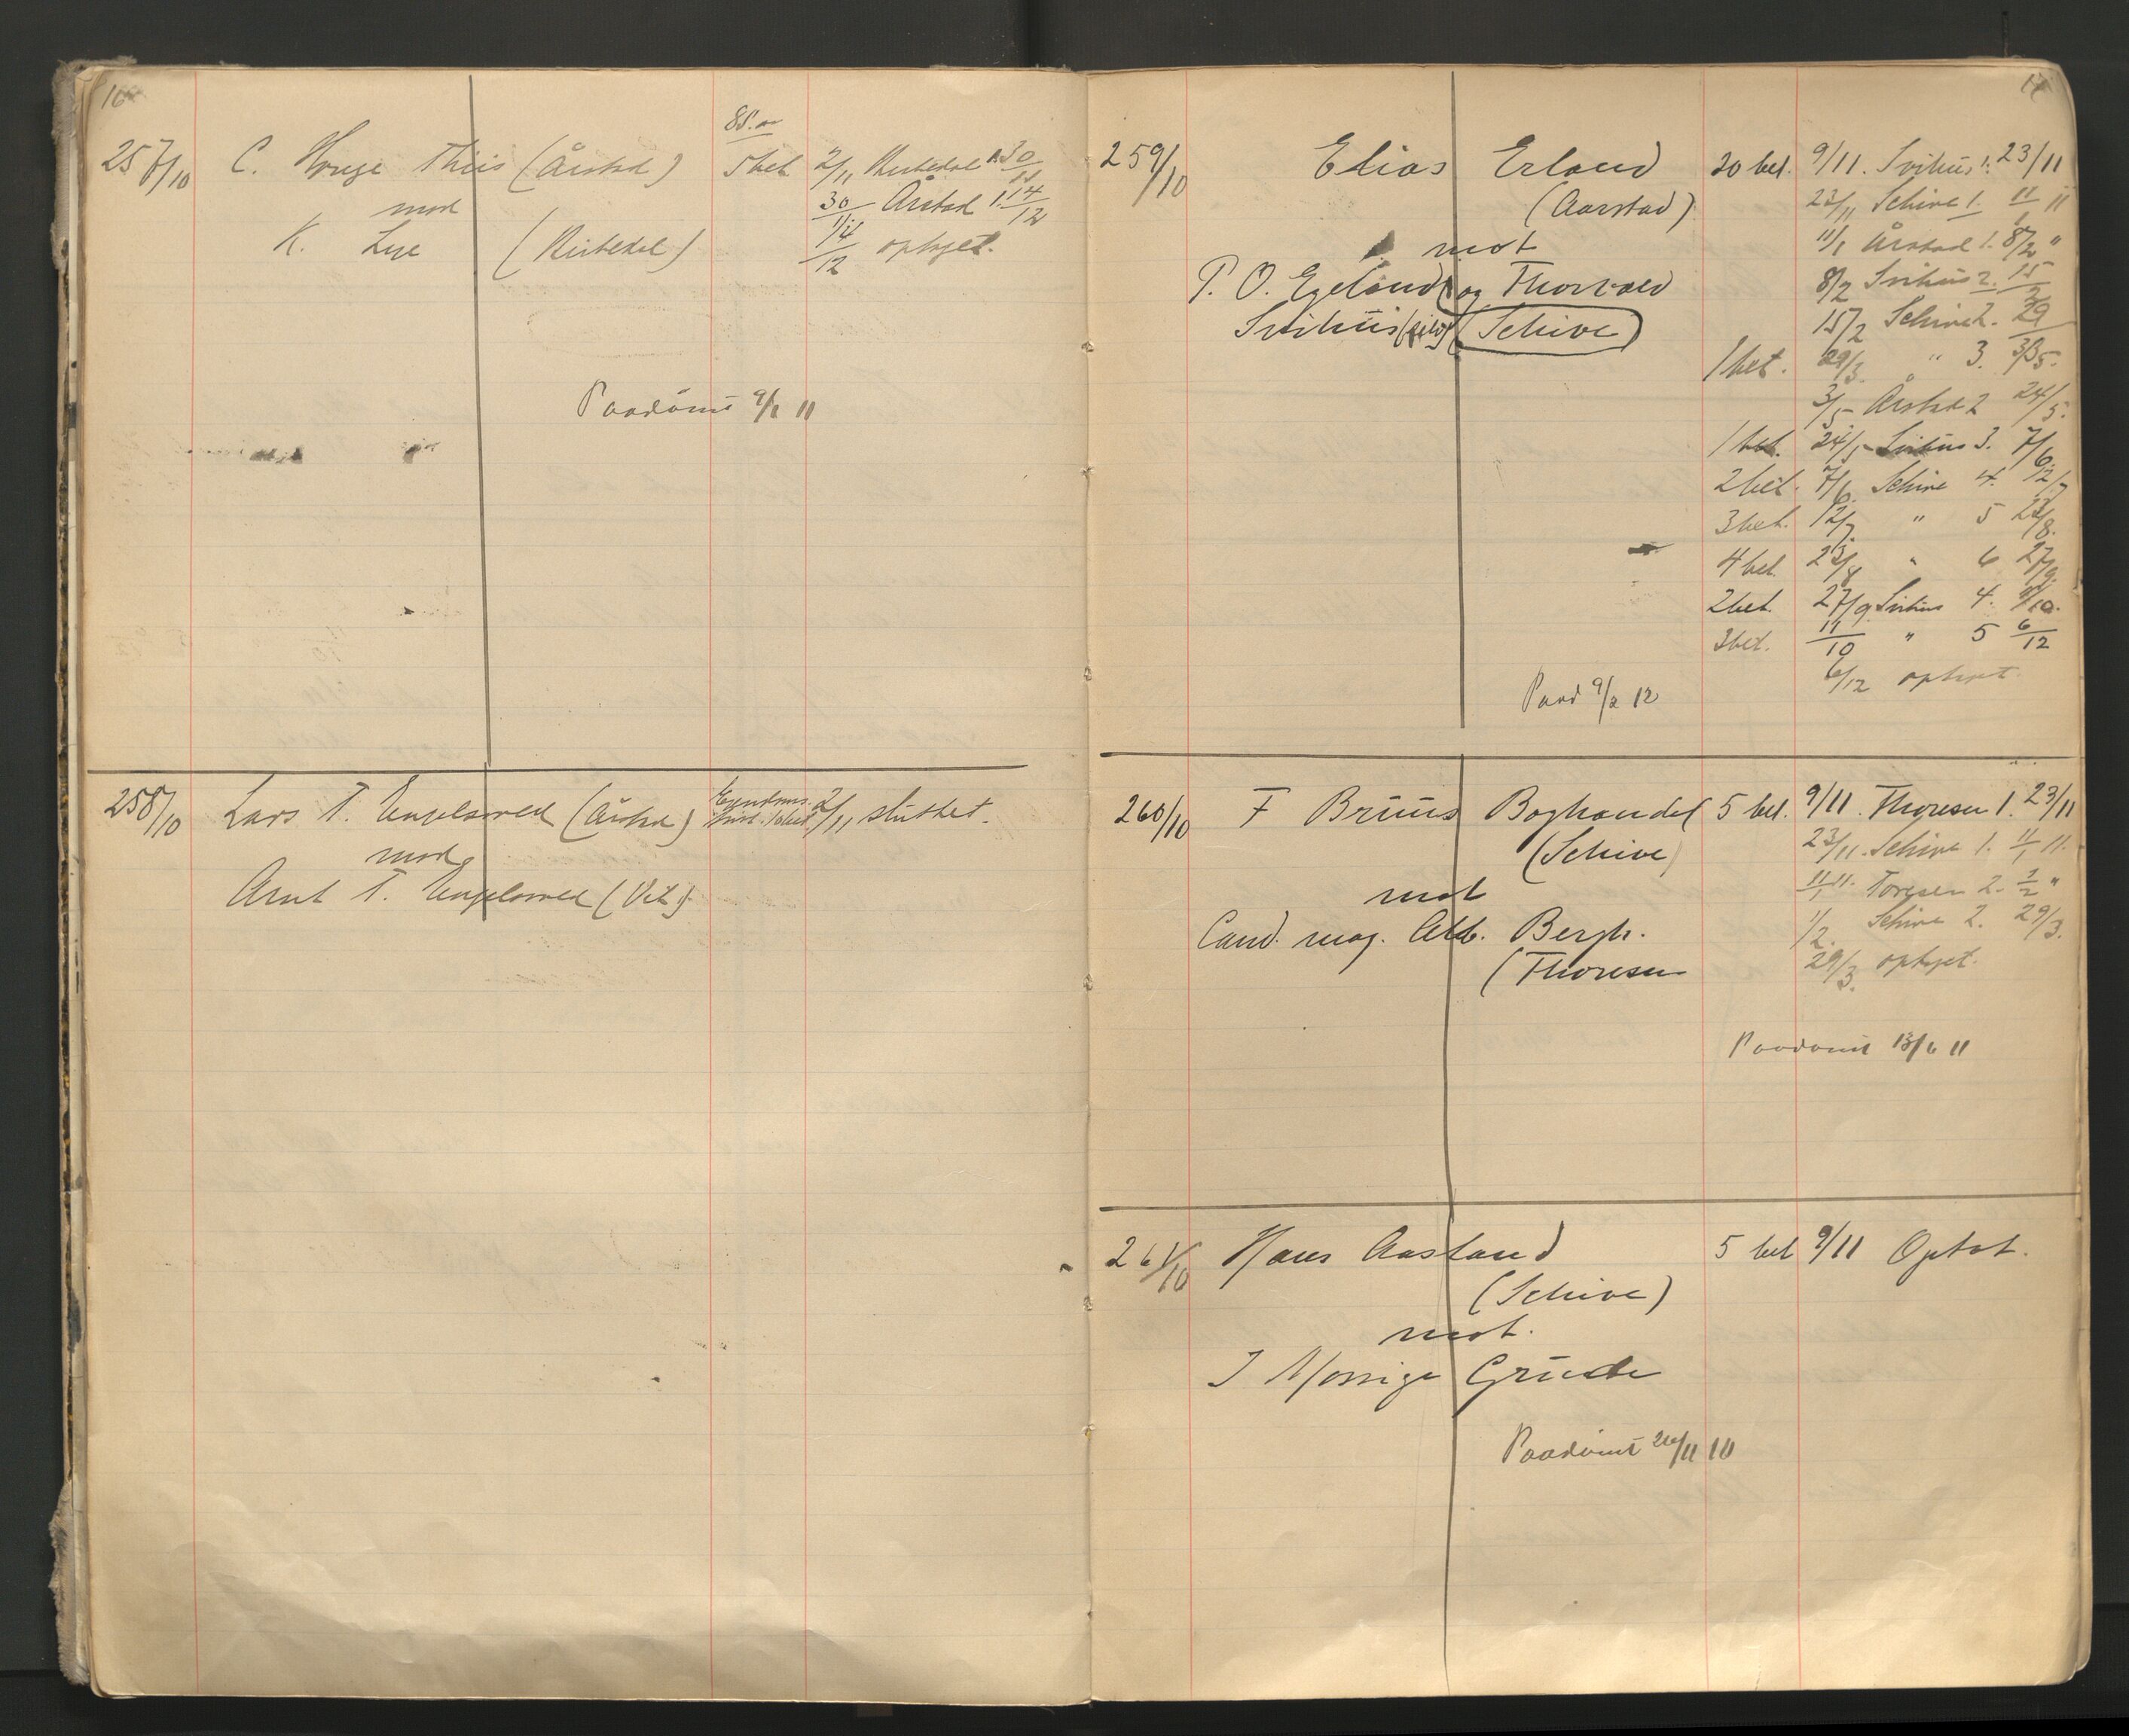 16
85.00
257/10 C. Houge Thiis (Årstad) 5 bet 2/11 Kirkedal 1. 30/11
mod 30/11 Årstad 1. 14/12
K. Lye (Kirkedal) 14/12 optaget.
Paadömt 9/1 11
258/10 Lars T. Ungelsmed (Årstad) 2/11 sluttet.
mod
Arnt T. Ungelsmed
17
259/10 Elias Erland 20 bet. 9/11. Svihus 1. 23/11
(Aarstad) 23/11 Schive 1. 11/1 11
mot 11/1 Årstad 1. 8/2 "
P. O. Egeland og Thorvald 8/2 Svihus 2. 15/2
Svihus (Schive) 15/2 Schive 2. 29
1 bet. 29/3. " 3. 3/5.
3/5 Årstad 2 24/5.
1 bet. 24/5 Svihus 3. 7/6
2 bet. 7/6. Schive 4. 12/7
3 bet. 12/7. " 5 23/8.
4 bet. 23/8 " 6 27/9.
2 bet. 27/9 Svihus 4. 11/10.
3 bet. 11/10 " 5 6/12
6/12 optaget.
Paad 9/2 12
260/10 F Bruns Boghandel 5 bet. 9/11. Thoresen 1. 23/11
(Schive) 23/11. Schive 1. 11/1 11.
mot 11/1 11. Toresen 2. 1/2 "
Cand. mag. Alb. Bergh. 1/2. Schive 2. 29/3.
(Thoresen 29/3. optaget.
Paadömt 13/6 11
261/10 Hans Aasland 5 bet 9/11 Optat.
(Schive)
mot.
J Mossige Grude
Paadömt 26/11 10